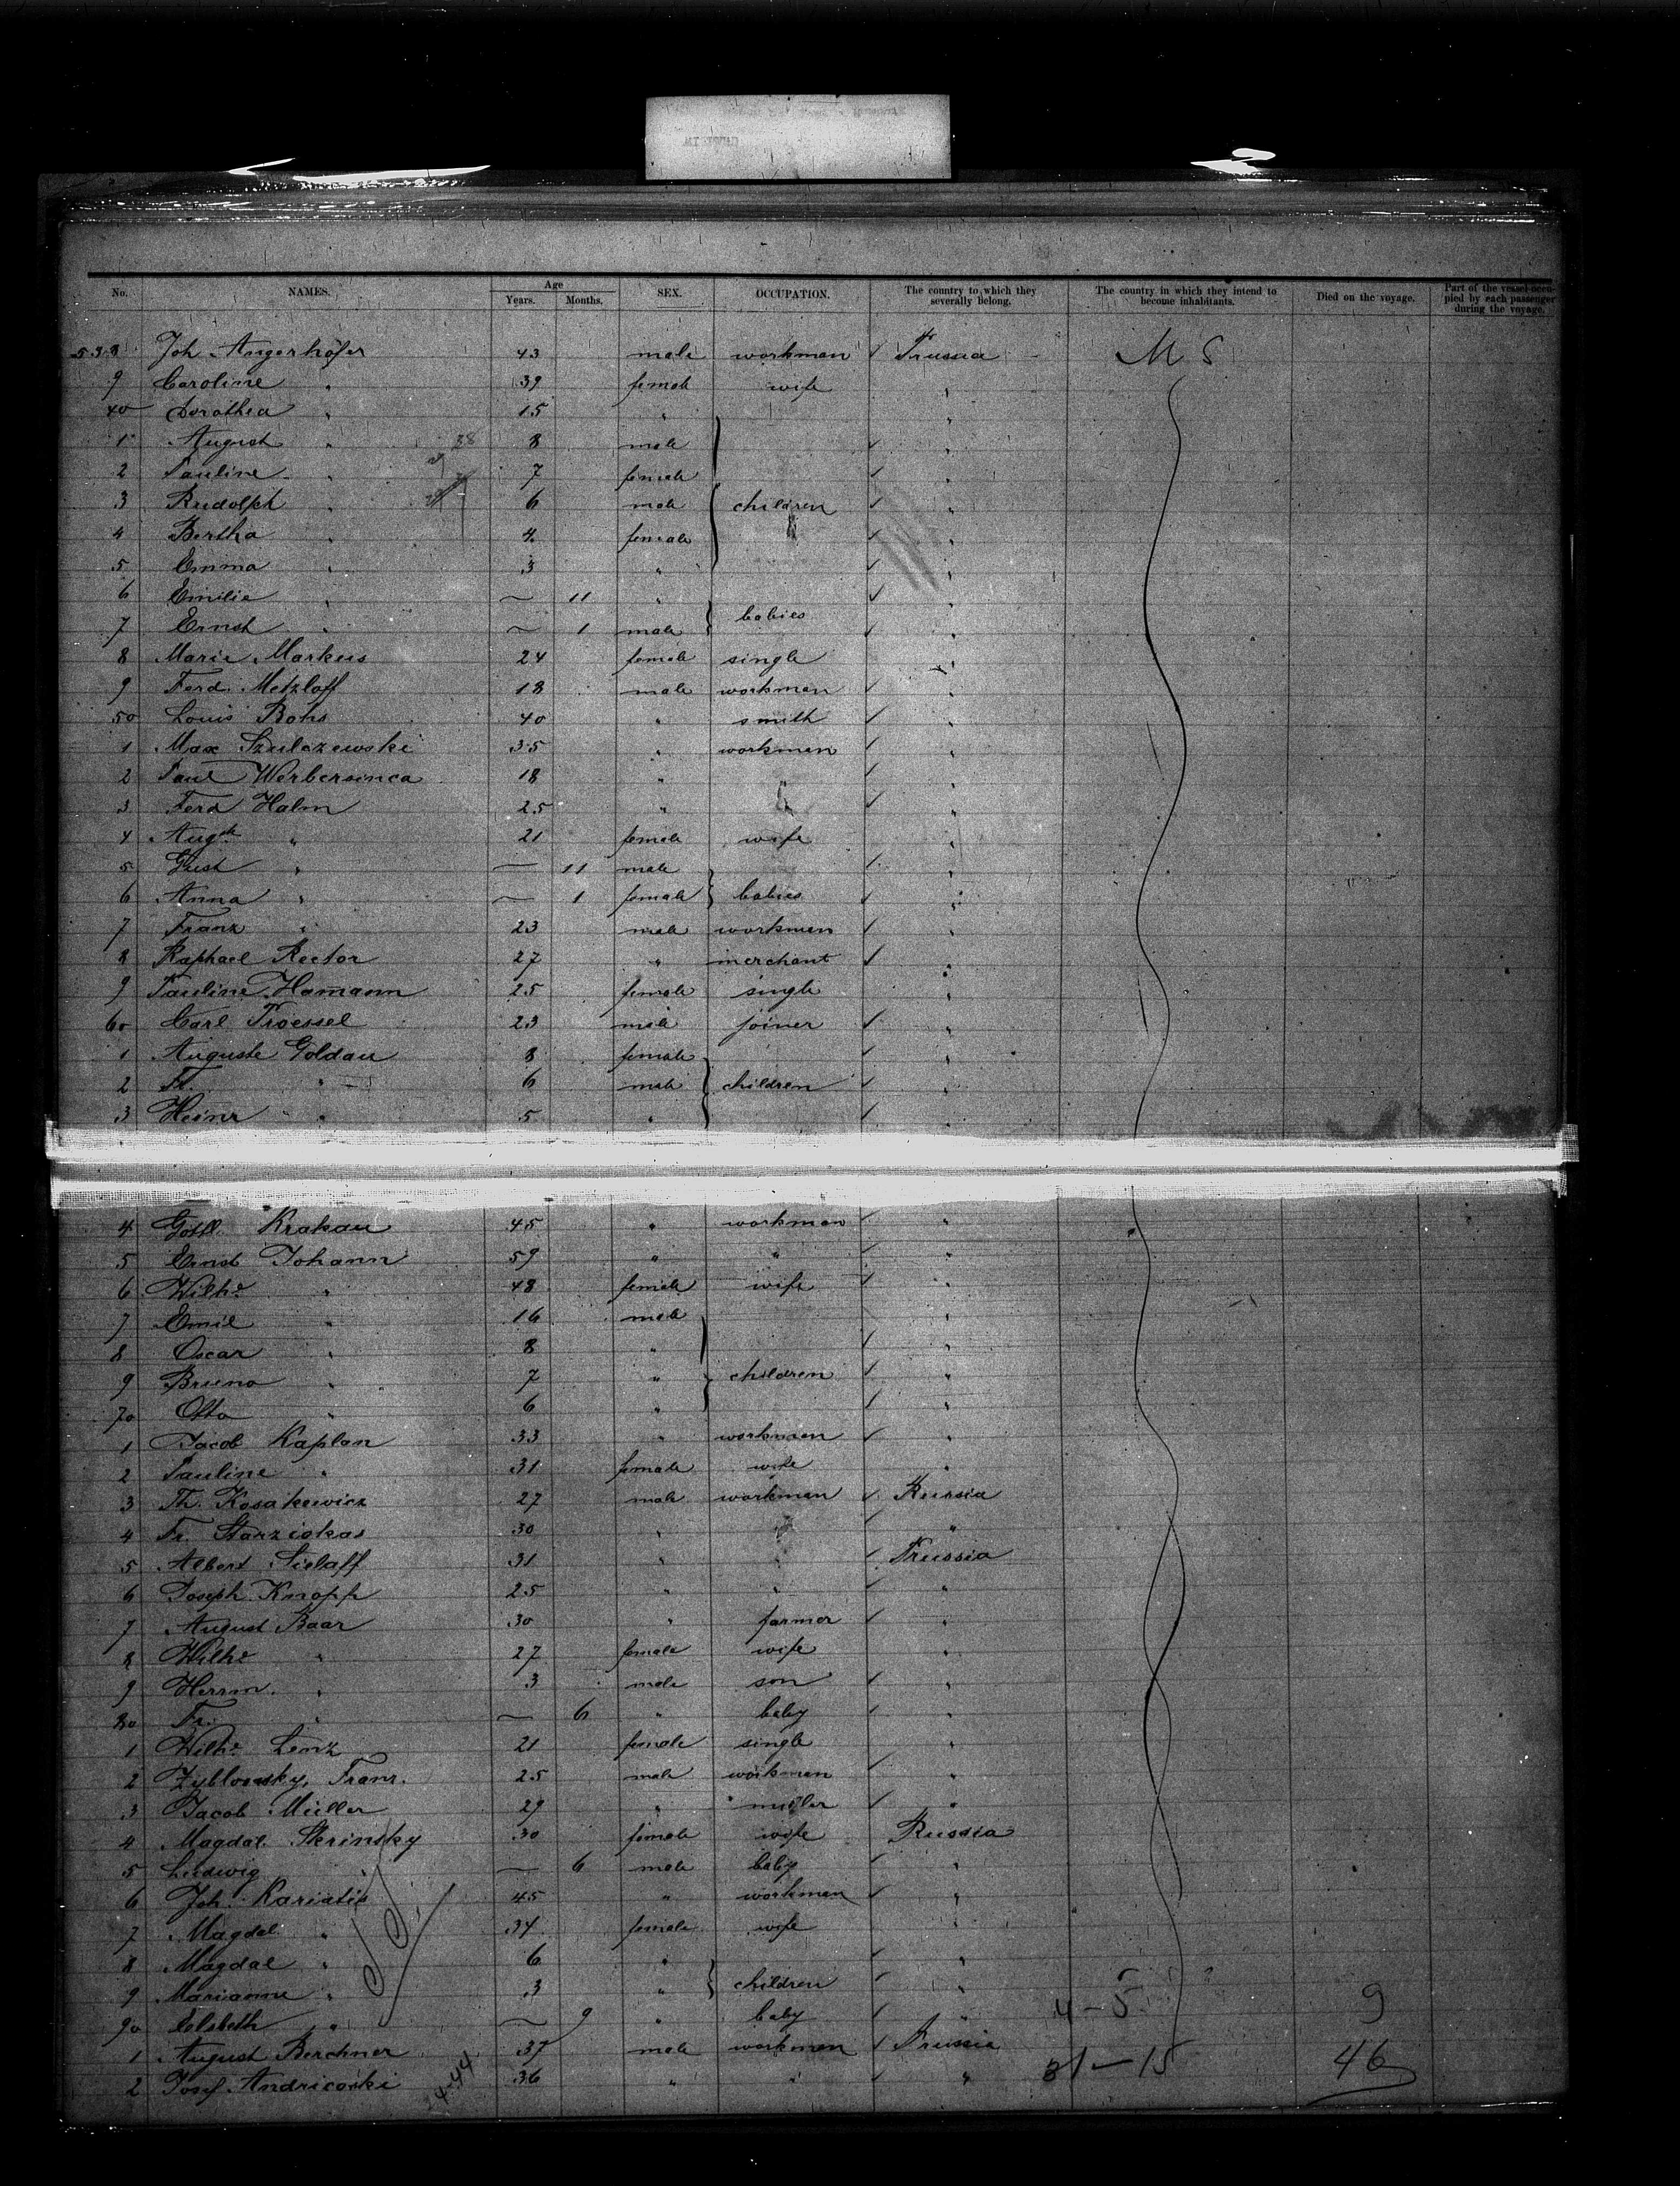 No. NAMES. Age Years. Months. SEX. OCCUPATION. The country to which they severally belong. The country in which they intend to become inhabitants. Died on the voyage. Part of the vessel occupied by each passenger during the voyage.
538 Joh. Angerhöfer 43 male workman Prussia M S
9 Caroline " 39 female wife "
40 Dorothea " 15 " "
1 August " 8 male "
2 Pauline " 7 female "
3 Rudolph " 6 male children "
4 Bertha " 4 female "
5 Emma " 3 " "
6 Emilie " — 11 " "
7 Ernst " — 1 male babies "
8 Marie Markus 24 female single "
9 Ferd. Metzlaff 18 male workman "
50 Louis Bohs 40 " smith "
1 Max Szulczewski 35 " workman "
2 Paul Werbersinca 18 " "
3 Ferd Halm 25 " "
4 Augste " 21 female wife "
5 Gust " — 11 male "
6 Anna " — 1 female babies "
7 Franz " 23 male workman "
8 Raphael Rector 27 " merchant "
9 Pauline Hamann 25 female single "
60 Carl Troessel 23 male joiner "
1 Auguste Goldau 8 female "
2 Fr. " 6 male children "
3 Heinr " 5 " "
4 Gottl. Krakau 45 " workman "
5 Ernst Johann 59 " " "
6 Wilhe " 48 female wife "
7 Emil " 16 male "
8 Oscar " 8 " "
9 Bruno " 7 " children "
70 Otto " 6 " "
1 Jacob Kaplan 33 " workman "
2 Pauline " 31 female wife "
3 Th. Kosakewicz 27 male workman Russia
4 Fr. Starziokas 30 " "
5 Albert Sielaff 31 " " Prussia
6 Joseph Knopp 25 " " "
7 August Baar 30 " farmer "
8 Wilhe " 27 female wife "
9 Herrm. " 3 male son "
80 Fr. " — 6 " baby "
1 Wilhe Lenz 21 female single "
2 Franz. 25 male workman "
3 Jacob Müller 29 " miller "
4 Magdal. Skrinsky 30 female wife Russia
5 Ludwig " — 6 male baby "
6 Joh. Kariatis 45 " workman "
7 Magdal. " 34 female wife "
8 Magdal " 6 " "
9 Marianne " 3 " children "
90 Elsbeth " — 9 " baby " 4-5 9
1 August Berchner 37 male workman Prussia 31-15 46
2 Josef Andricoski 36 " " "